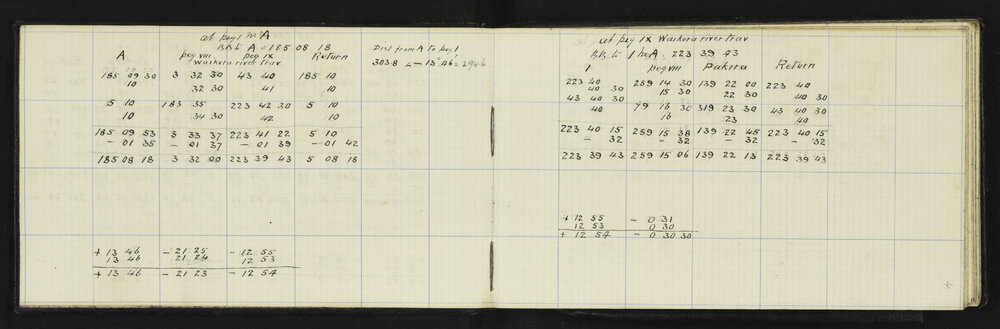 at peg 1 in A
BB to A = 185 08 18
A peg viii peg ix Return
Waikura river Trav
185 09 30 3 32 30 43 40 185 10
10 32 30 41 10
5 10 183 35 223 42 30 5 10
10 34 30 42 10
185 09 53 3 33 37 223 41 22 5 10
- 01 35 - 01 37 - 01 39 - 01 42
185 08 18 3 32 00 223 39 43 5 08 18
+ 13 46 - 21 25 - 12 55
13 46 21 24 12 53
+ 13 46 - 21 23 - 12 54
Dist from A to peg 1
303.8 ∠- 13 46 = 294.6
at peg ix Waikura river Trav
BB to 1 A = 223 39 43
1 peg viii Pakira Return
223 40 259 14 30 139 22 00 223 40
40 30 15 30 22 30 40 30
43 40 30 79 16 30 319 23 30 43 40 30
40 16 23 40
223 40 15 259 15 38 139 22 45 223 40 15
- 32 - 32 - 32 - 32
223 39 43 259 15 06 139 22 13 223 39 43
+ 12 55 - 0 31
12 53 0 30
+ 12 54 - 0 30 30